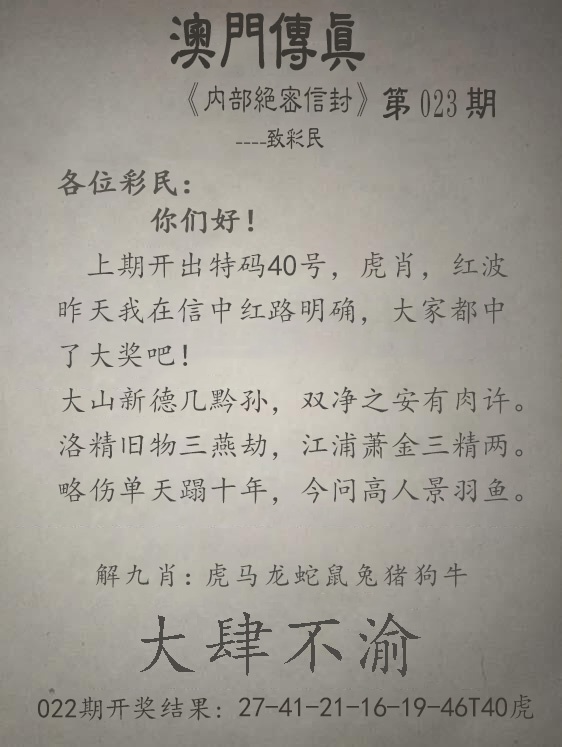 澳門傳眞
《内部絕密信封》第023期
----致彩民
各位彩民：
你们好！
上期开出特码40号，虎肖，红波
昨天我在信中红路明确，大家都中
了大奖吧！
大山新德几黔孙，双净之安有肉许。
洛精旧物三燕劫，江浦萧金三精两。
略伤单天蹋十年，今问高人景羽鱼。
解九肖：虎马龙蛇鼠兔猪狗牛
大肆不渝
022期开奖结果：27-41-21-16-19-46T40虎